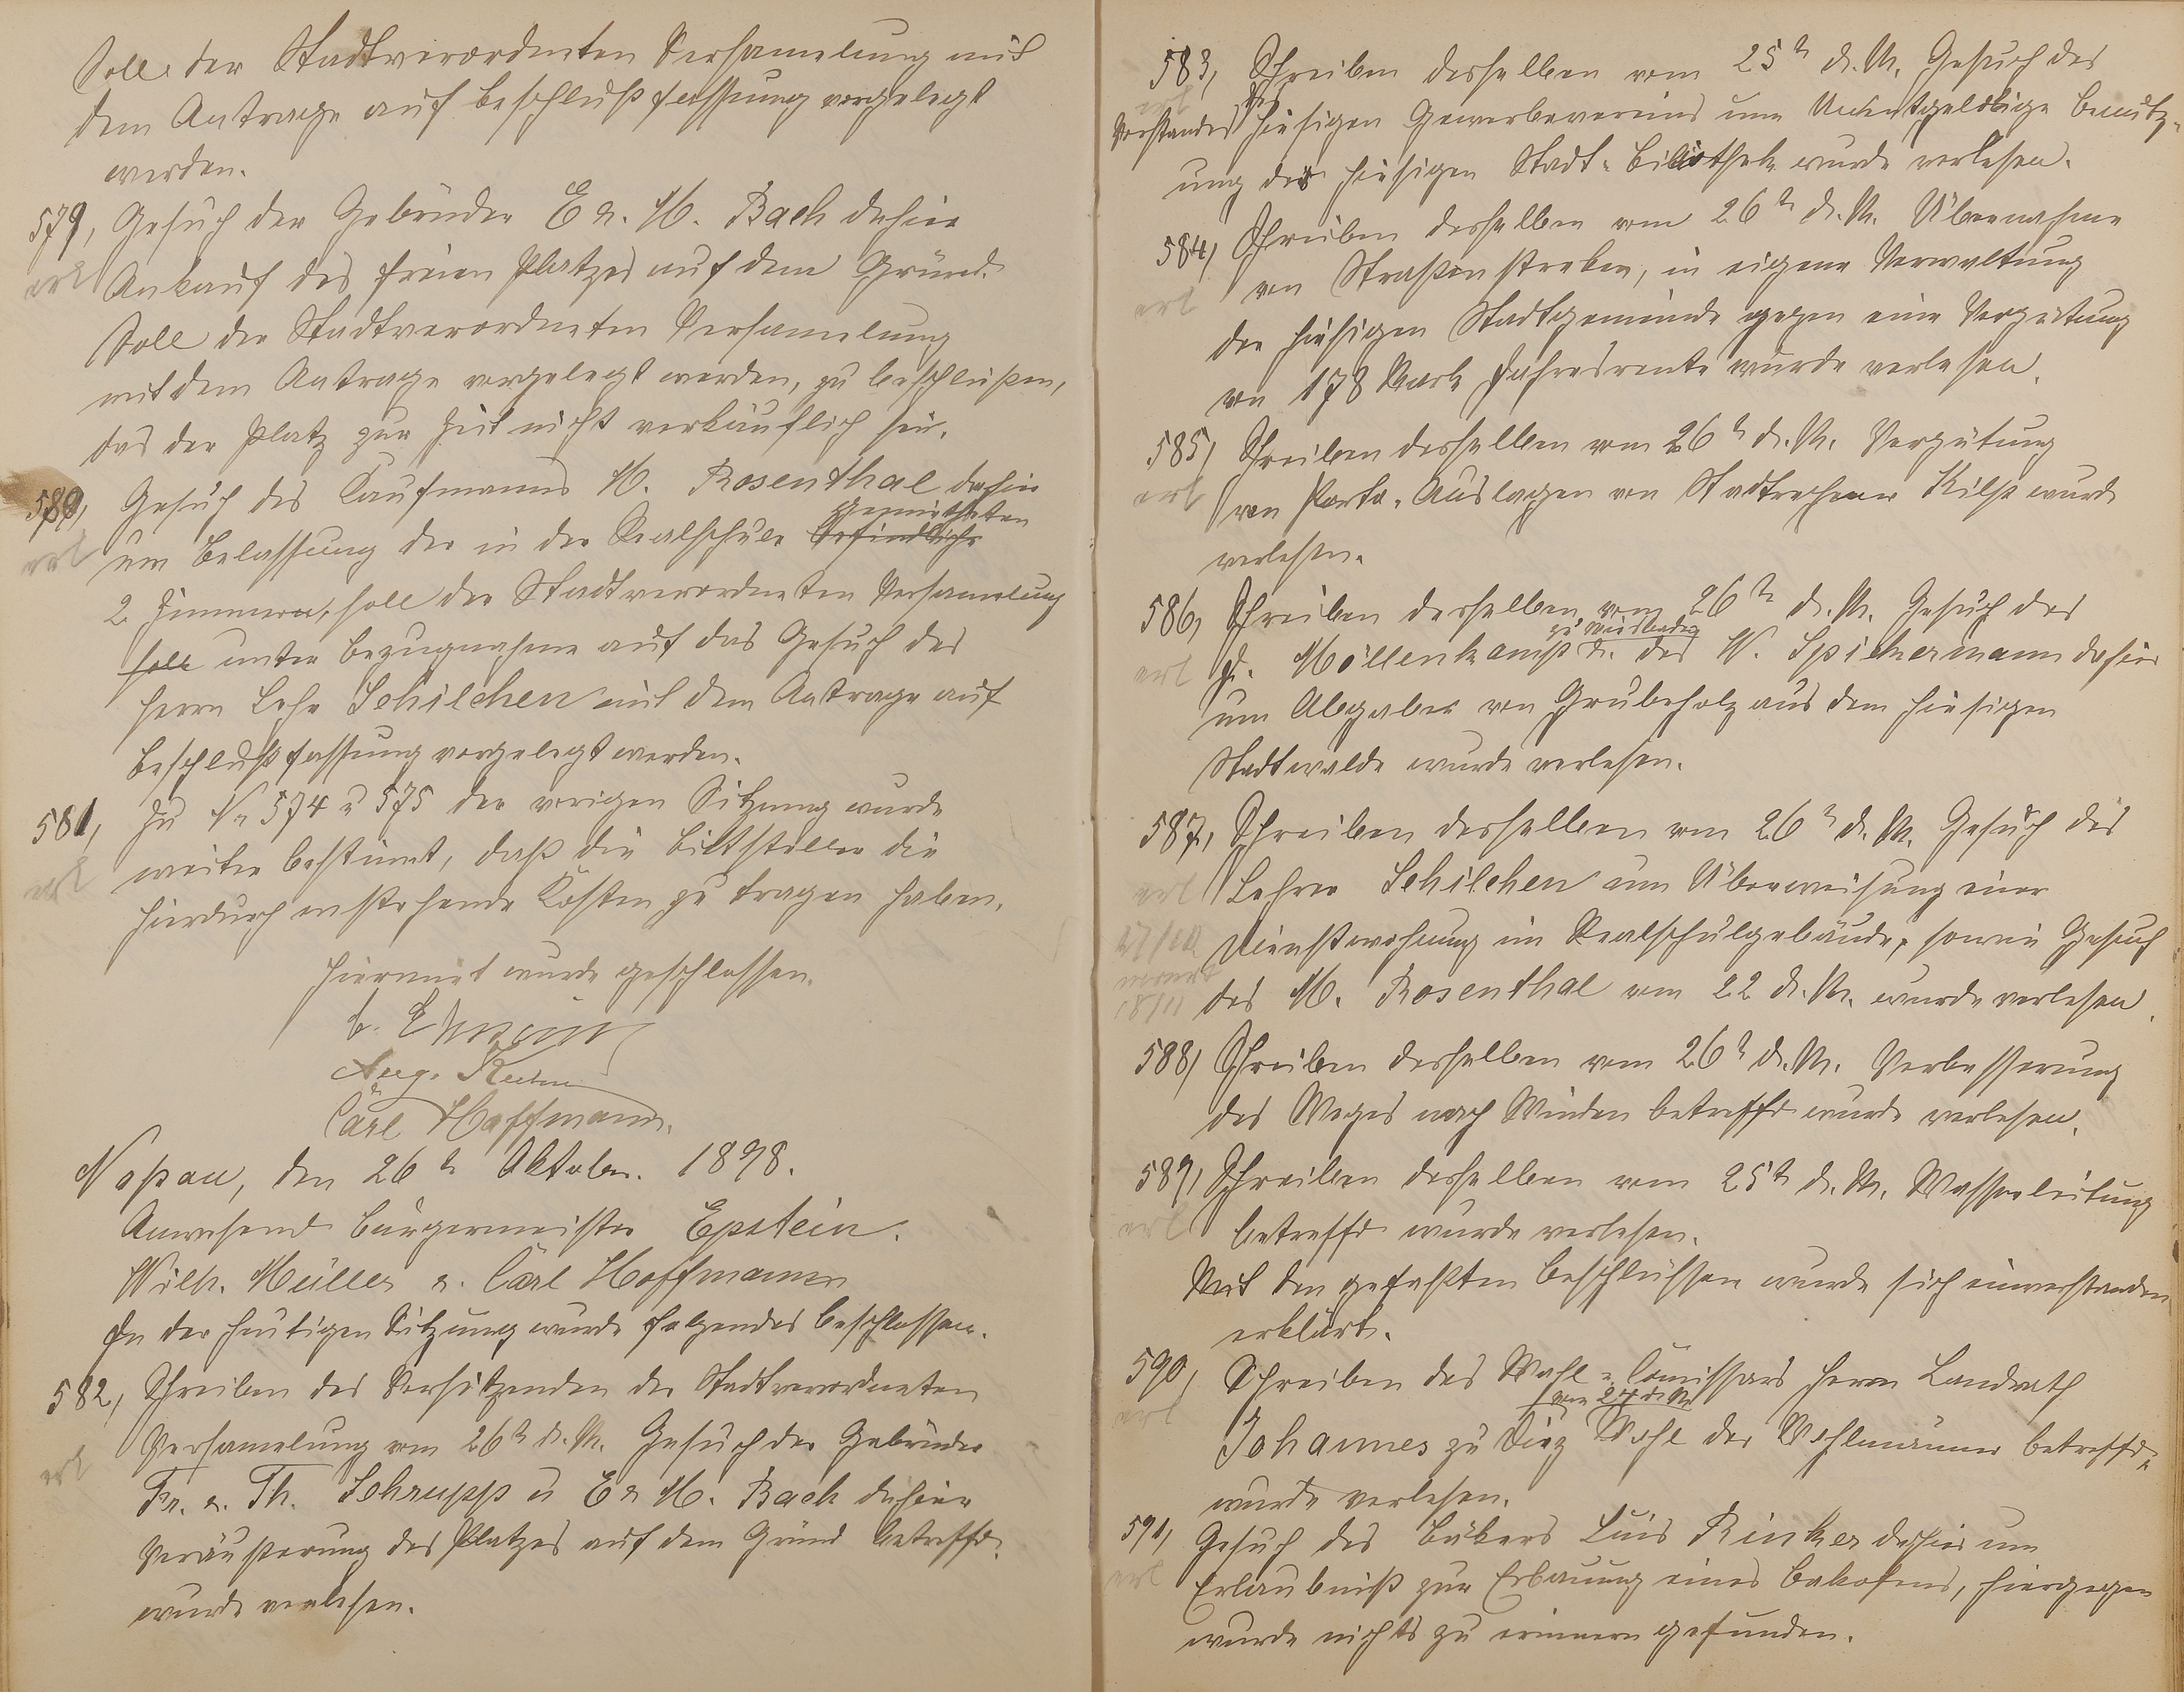 Soll der Stadtverordneten Versamelung mit
dem Antrage auf Beschlußfassung vorgelegt
werden.
579, Gesuch der Gebrüder E u. M. Bach dahier
erl Ankauf des freien Platzes auf dem Gründ.
Soll der Stadtverordneten Versamelung
mit dem Antrage vorgelegt werden, zu beschlußen,
das der Platz zur Zeit nicht verkäuflich sei.
580, Gesuch des Kaufmanns M. Rosenthal dahier
gemietheten
erl um Belassung der in der Realschule befindliche
2 Zimmern, soll der Stadtverordneten Versamelung
soll unter Bezugnahme auf das Gesuch des
Herrn Lehr Schilchen mit dem Antrage auf
Beschlußfassung vorgelegt werden.
581, Zu No 574 u 575 der vorigen Sitzung wurde
erl weiter bestimt, daß die Bittsteller die
hierdurch enstehende Kosten zu tragen haben.
Hiermit wurde geschlossen.
Aug. Kuhn
Carl Hoffmann.
Naßau, den 26ten Oktober. 1898.
Anwesend Bürgermeister Epstein.
Wilh. Müller u. Carl Hoffmann
In der heutigen Sitzung wurde folgendes beschlossen.
582, Schreiben des Vorsitzenden der Stadtverordneten
erl Versamelung vom 26ten d. M. Gesuch der Gebrüder
Fr. u. Th. Schrupp u E u M. Bach dahier
Veräußerung des Platzes auf dem Gründ betreffd.
wurde verlesen.
583, Schreiben desselben vom 25ten d. M. Gesuch des
des
Vorstandes hiesigen Gewerbevereins um Unentgeldtige Benutz-
ung der hiesigen Stadt-Biliothek wurde verlesen.
584, Schreiben desselben vom 26ten d. M. Übernahme
erl von Straßenstreken, in eigene Verwaltung
der hiesigen Stadtgemeinde gegen eine Vergütung
von 178 Mark Jahresrente wurde verlesen.
585, Schreiben desselben vom 26ten d. M. Vergütung
erl von Porto-Auslagen von Stadtrechner Kilp wurde
verlesen.
586, Schreiben desselben vom 26ten d. M. Gesuch des
zu Wiesbaden
erl H. Möllenkamp u. des W. Spikermann dahier
um Abgabe von Grubeholz aus dem hiesigen
Stadtwalde wurde verlesen.
587, Schreiben desselben vom 26ten d. M. Gesuch des
erl Lehrer Schilchen um Überweisung einer
27/10 Dienstwohnung im Realschulgebäude, sowie Gesuch
18/11 des M. Rosenthal vom 22 d. M. wurde verlesen.
588, Schreiben desselben vom 26ten d. M. Verbesserung
des Weges nach Winden betreffd wurde verlesen.
589, Schreiben desselben vom 25ten d. M. Wasserleitung
erl betreffd wurde verlesen.
Mit den gefaßten Beschlüssen wurde sich einverstanden
erklärt.
590, Schreiben des Wahl-Comissars Herrn Landrath
vom 24 d. M.
erl Johannes zu Diez Wahl der Wahlmänner betreffd.
wurde verlesen.
591, Gesuch des Bäkers Luis Rinker dahier um
erl Erlaubniß zur Erbauung eines Bakofens, hiergegen
wurde nichts zu erinnern gefunden.